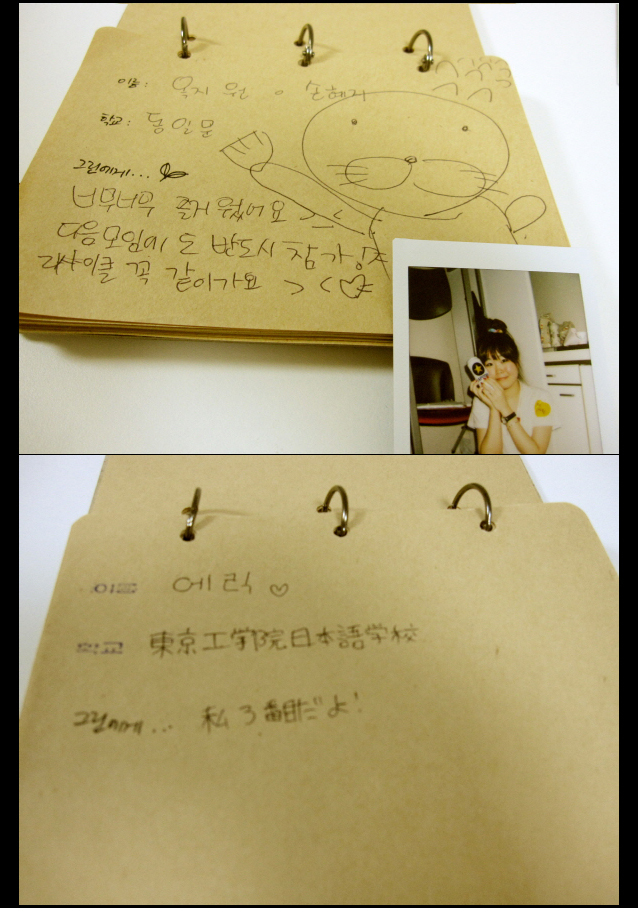 이름: 옥지원 o 손혜지
학교: 동일문
그럼에게...
너무너무 즐거웠어요 >_<
다음모임에도 반드시 참가상
리사이클 꼭 같이가요 > <
이름 에릭 ♡
학교 東京工学院日本語学校
그럼에게... 私3番目だよ!